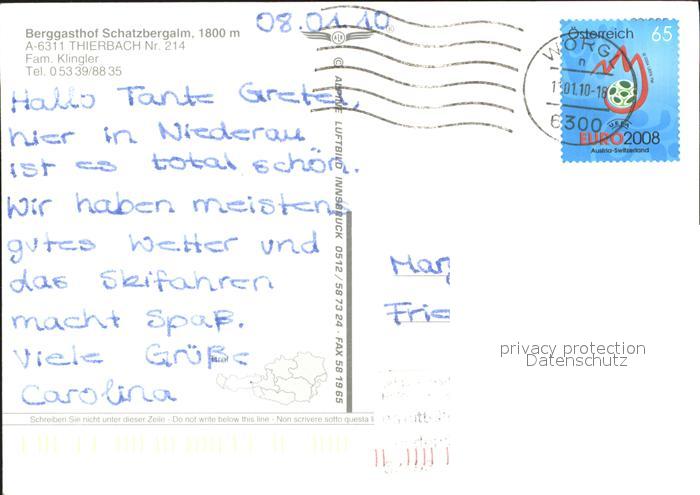 08.01.10
Berggasthof Schatzbergalm, 1800 m
A-6311 THIERBACH Nr. 214
Fam. Klingler
Tel. 0 53 39/88 35
Hallo Tante Gretel,
hier in Niederau
ist es total schön.
Wir haben meistens
gutes Wetter und
das Skifahren
macht Spaß.
Viele Grüße
Carolina
Schreiben Sie nicht unter dieser Zeile - Do not write below this line - Non scrivere sotto questa li
© ALPINE LUFTBILD INNSBRUCK 0512 / 58 73 24 · FAX 58 19 65
Österreich 65
WÖRGL
.01.10-18
6300
EURO2008
Austria-Switzerland
privacy protection
Datenschutz